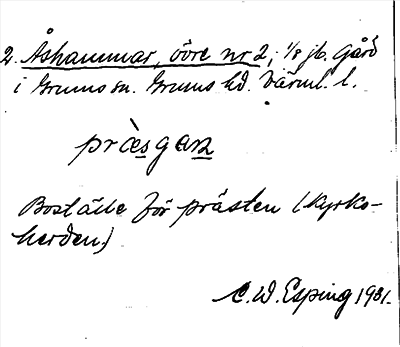 2. Åshammar, övre nr 2, 1/8 jb. Gård
i Grums sn. Grums hd. Värml. l.
præ̀sgaɳ
Boställe för prästen (kyrko-
herden.)
C. W. Esping 1931.